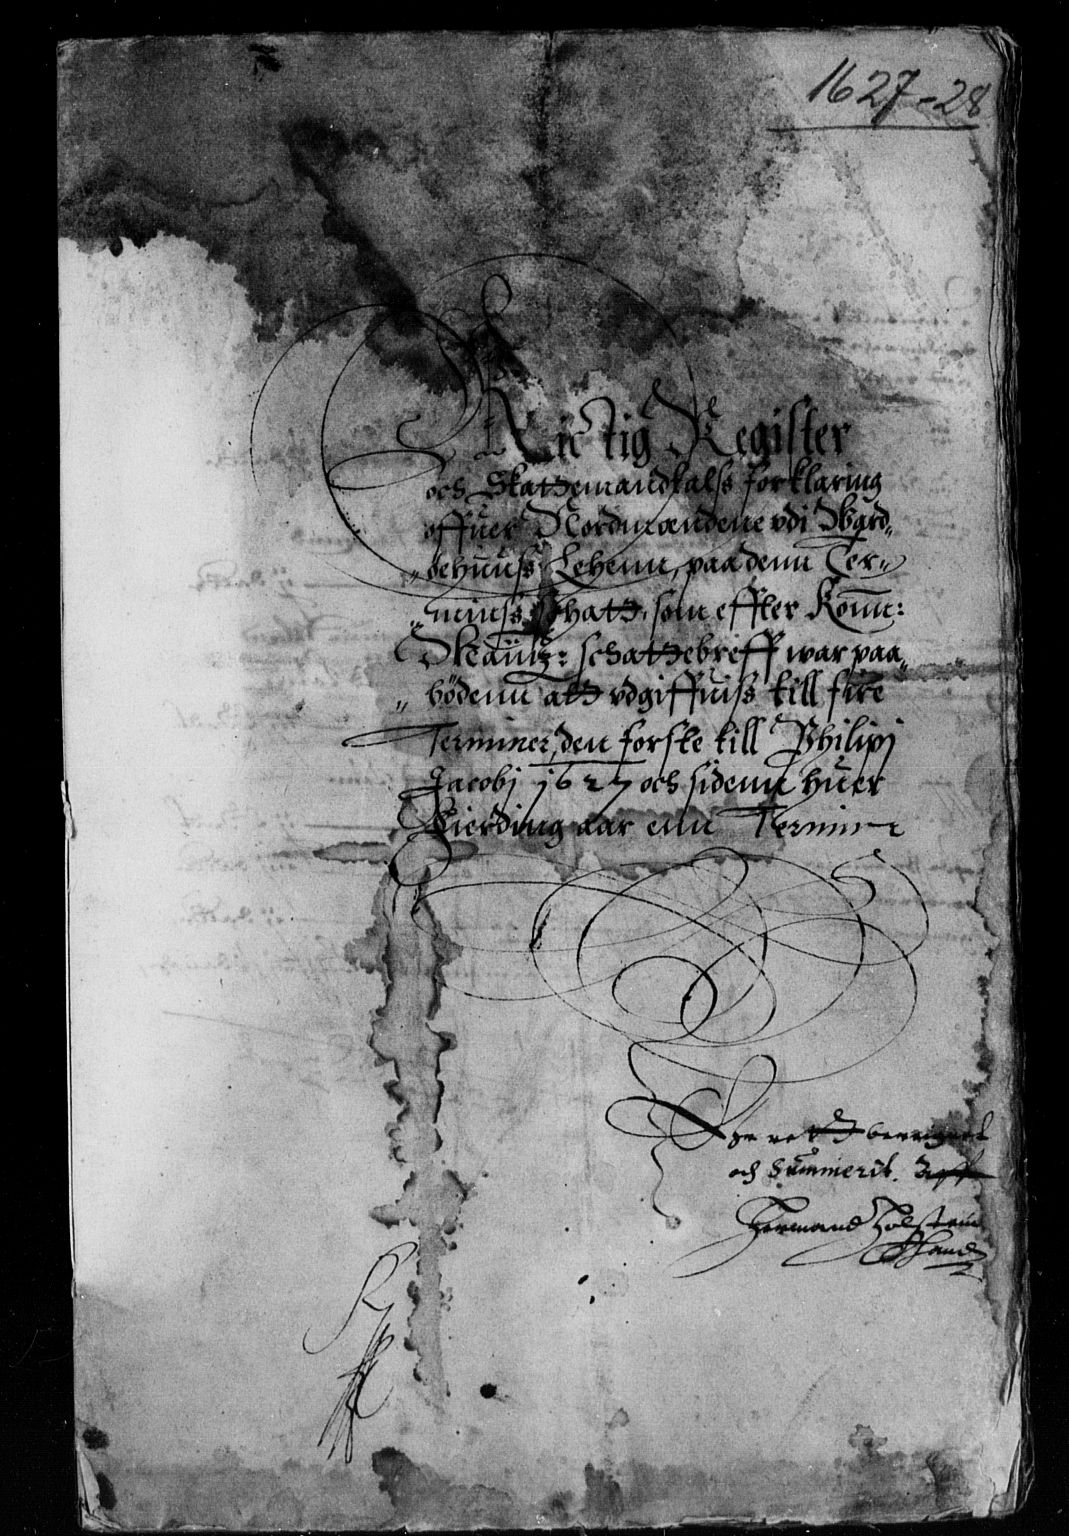 1627-28
Richtig Register
och Skattemandtals forklaring
offuer Nordmændene vdi Ward„
„øehuuss Lehenn, paa denn Ter„
„minss schatt, som effter Konn:
Maÿttz: schattebreff war paa„
„bödenn att vdgiffuiss till fire
Terminer, den forste till Philipi
Jacobi 1627 och sidenn huer
Fierding aar enn Termin
Er rett beregnet
och Summerit. Aff
Hermand Holstein
Hand